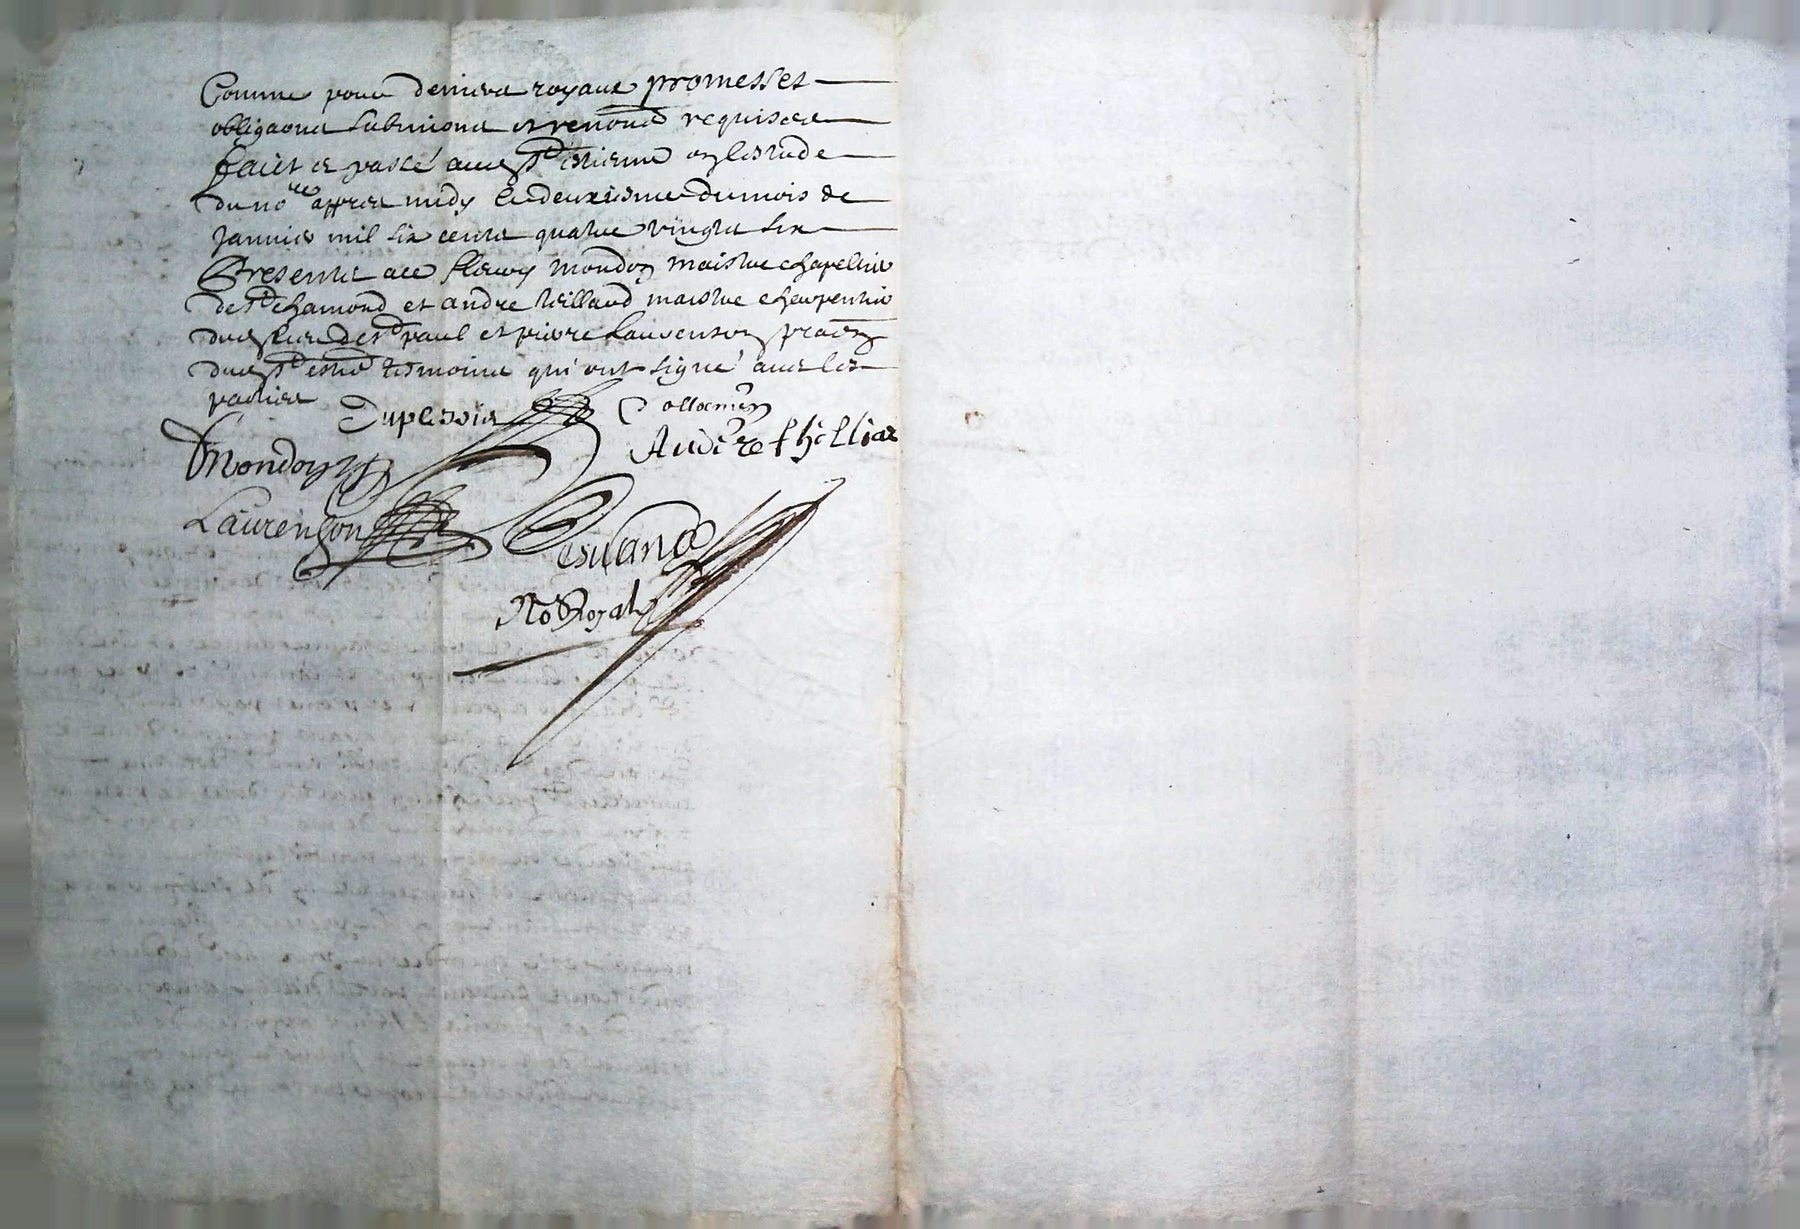 Comme pour deniers royaux promesses
obligaons submions et renons requises
faict et passé aud St Estienne en lestude
du nore appres midy le deuxiesme du mois de
Janvier mil six cents quatre vingts six
Presents a ce fleury mondon maistre chapellier
de St chamond et andre thilland maistre charpentier
dud lieu de St paul et pierre Laurenson praen
dud St estie tesmoins qui ont signé avec les
parties
Duplessis
Mondon
Andre thelliar
Laurenson
No Royal